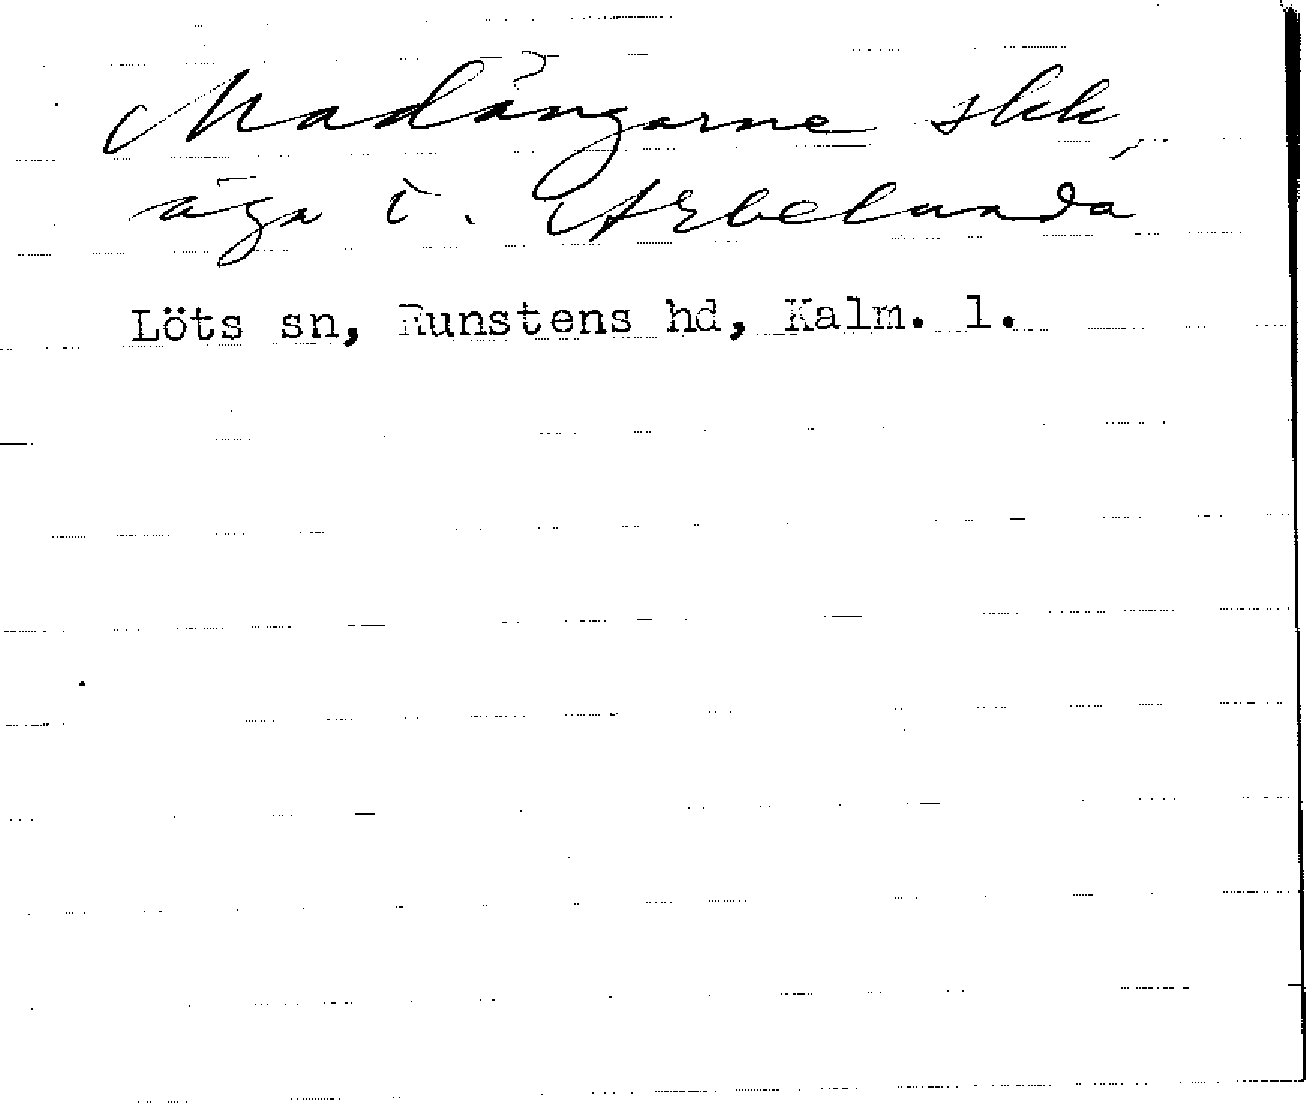 Madängarne skk,
äga i. Arbelunda
Löts sn, Runstens hd, Kalm. l.